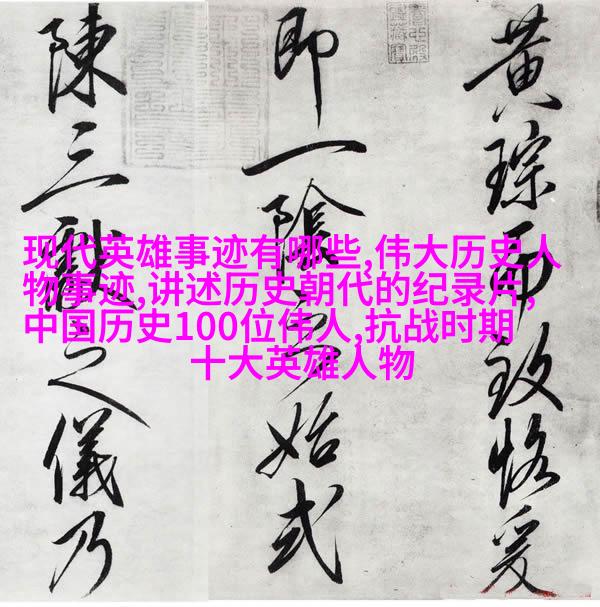 黄琮而致恪爰
即一陰始式
陳三獻之儀乃
现代英雄事迹有哪些,伟大历史人
物事迹,讲述历史朝代的纪录片,
中国历史100位伟人,抗战时期
十大英雄人物